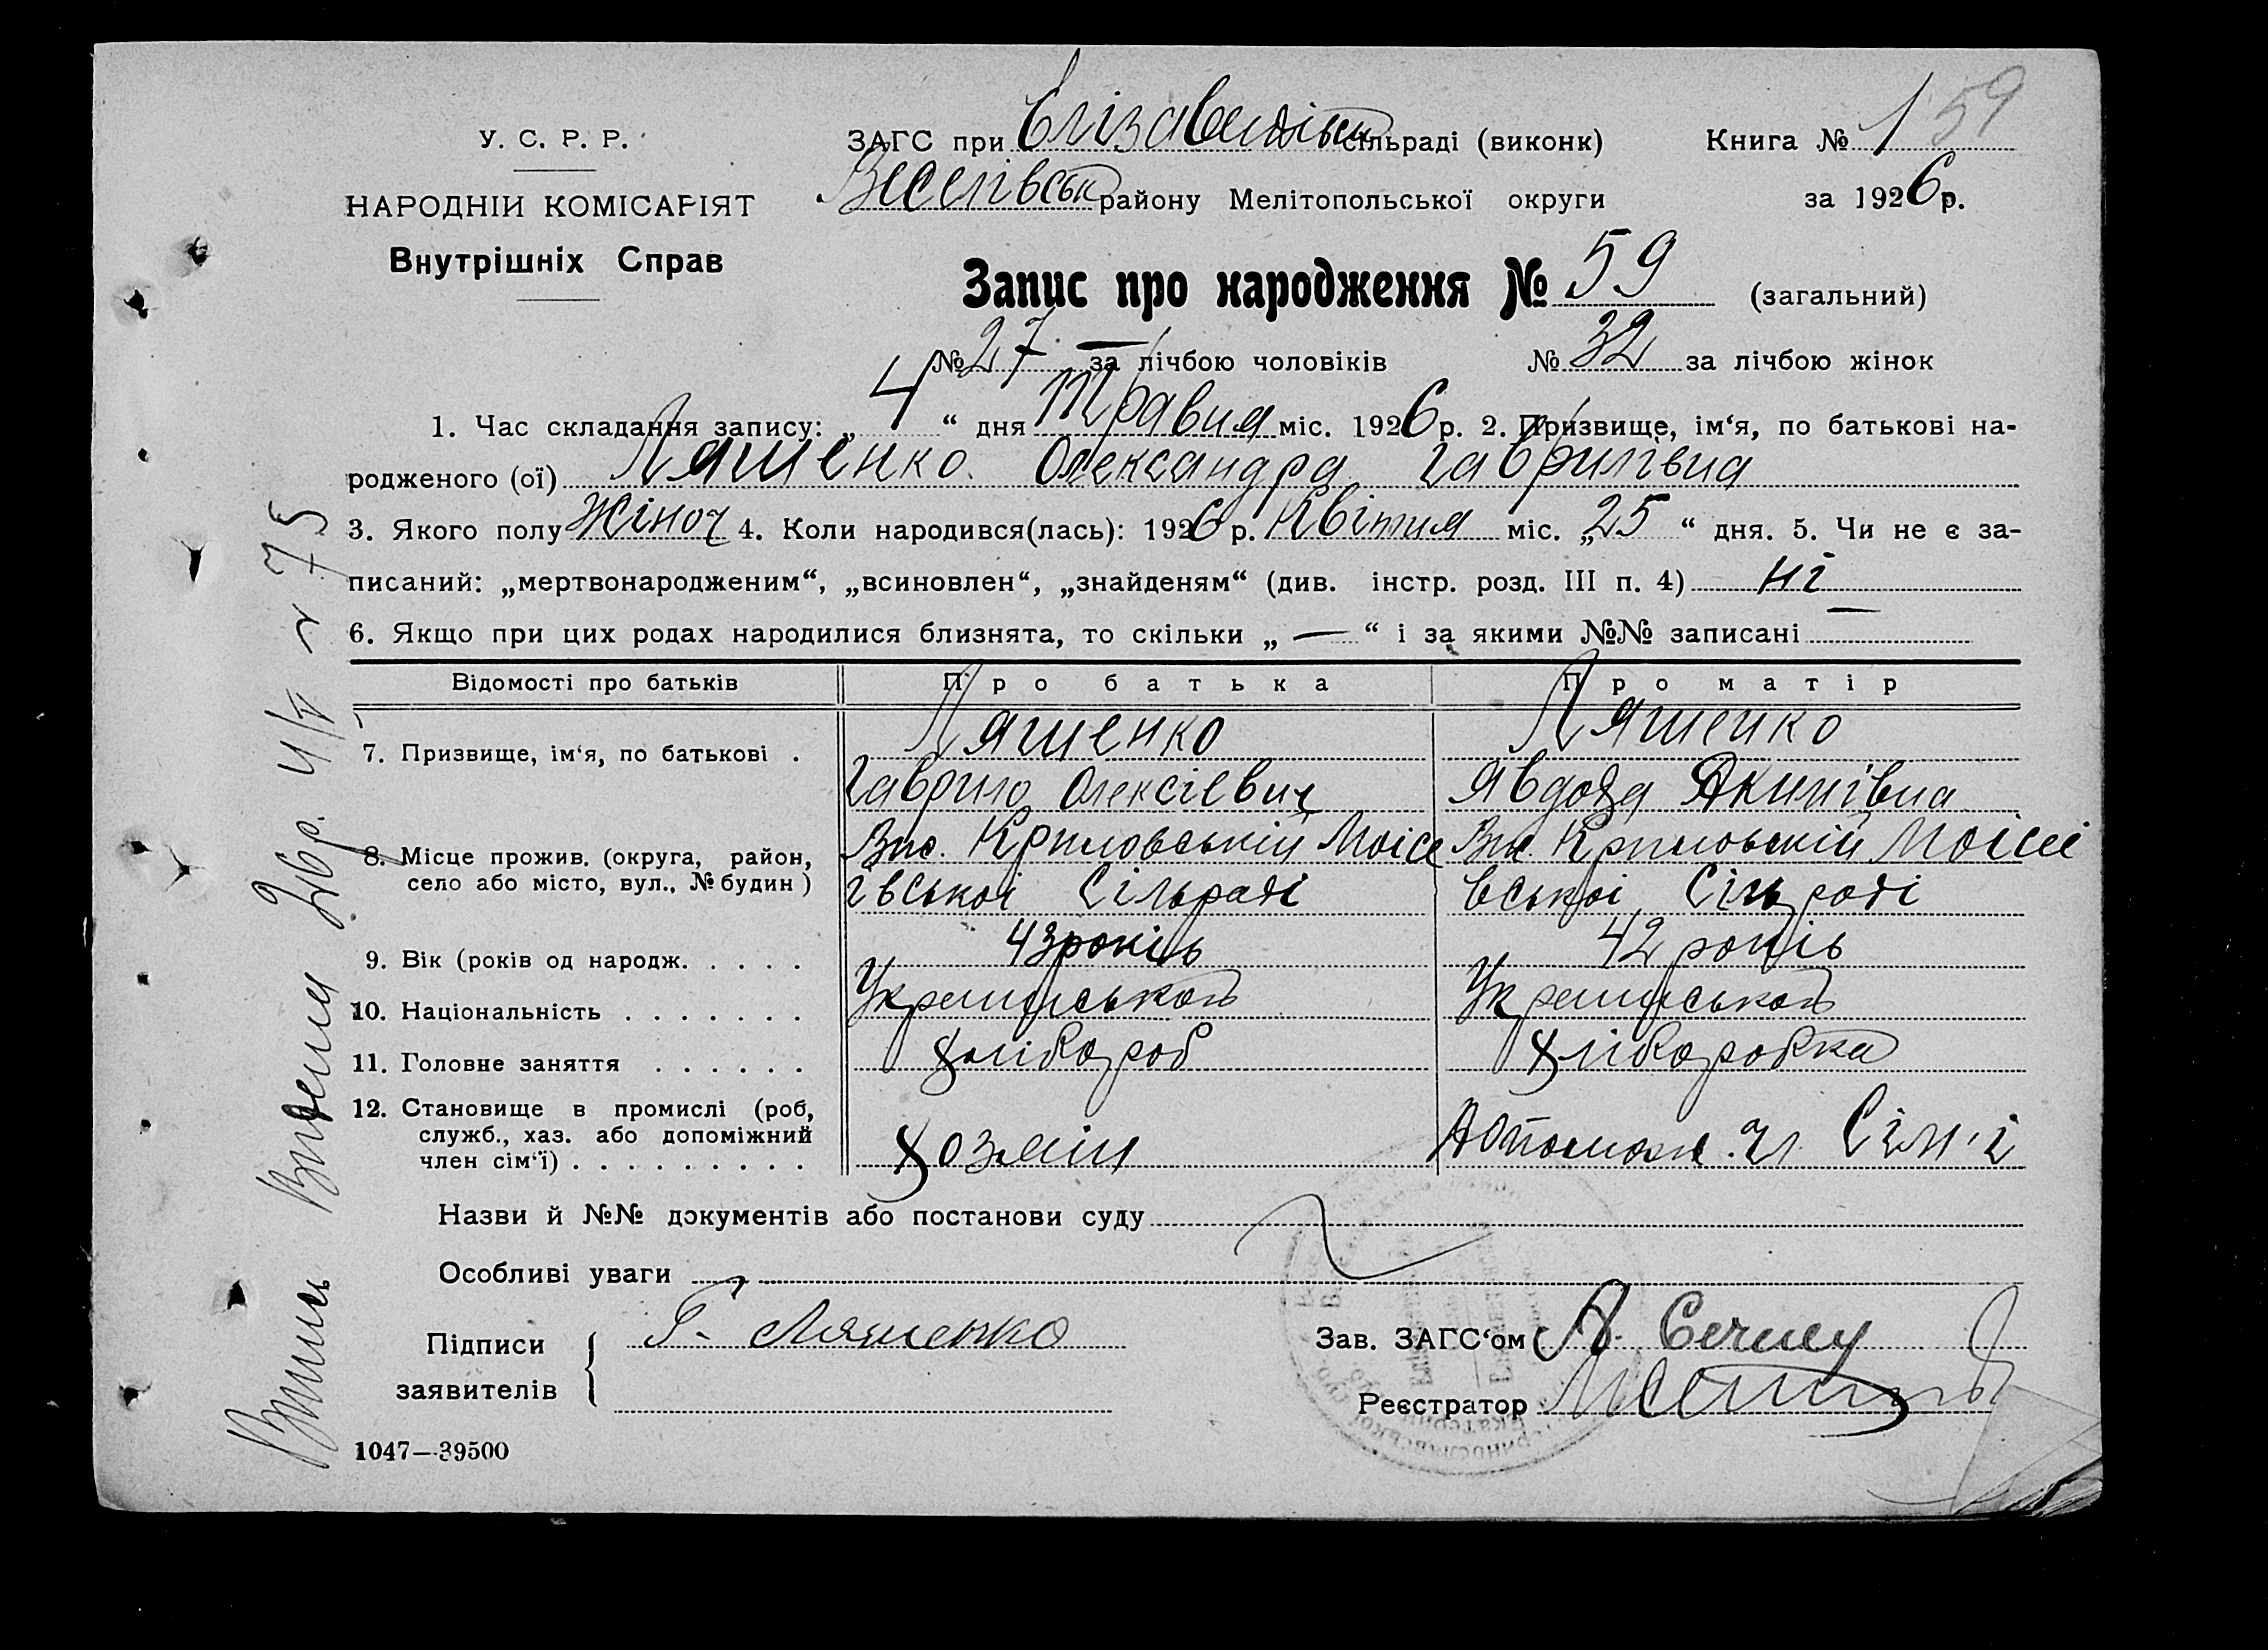 У. С. Р. Р.
НАРОДНІЙ КОМІСАРІЯТ
Внутрішніх Справ
ЗАГС при Єлізаведівськ сільраді (виконк)
Веселівськ району Мелітопольської округи
Книга № 1 59
за 1926 р.
Запис про народження № 59 (загальний)
№ 27 за лічбою чоловіків № 32 за лічбою жінок
1. Час складання запису: „ 4 “ дня Травня міс. 1926 р. 2. Призвище, ім‘я, по батькові на-
родженого (ої) Ляшенко Олександра Гаврилівна
3. Якого полу Жіноч 4. Коли народився(лась): 1926 р. Квітня міс. „ 25 “ дня. 5. Чи не є за-
писаний: „мертвонародженим“, „всиновлен“, „знайденям“ (див. інстр. розд. III п. 4) ні
6. Якщо при цих родах народилися близнята, то скільки „ — “ і за якими №№ записані —
Відомості про батьків Про батька Про матір
7. Призвище, ім‘я, по батькові . Ляшенко Ляшенко
Гаврило Олексієвич Явдоха Якимівна
8. Місце прожив. (округа, район, Вис. Криловській Моісе Вис. Криловській Моісеі
село або місто, вул., № будин ) івської Сільраді вської Сільраді
9. Вік (років од народж. . . . . 43 років 42 років
10. Національність . . . . . . . Українська Українська
11. Головне заняття . . . . . . хлібороб хліборобка
12. Становище в промислі (роб,
служб., хаз. або допоміжний
член сім‘ї) . . . . . . . . . хозяін Допомож. чл. Сім'ї
Назви й №№ документів або постанови суду
Особливі уваги
Підписи Г. Ляшенко
заявителів
Зав. ЗАГС‘ом
Реєстратор
1047—39500
Випись Видани 26 р. 4/V № 75